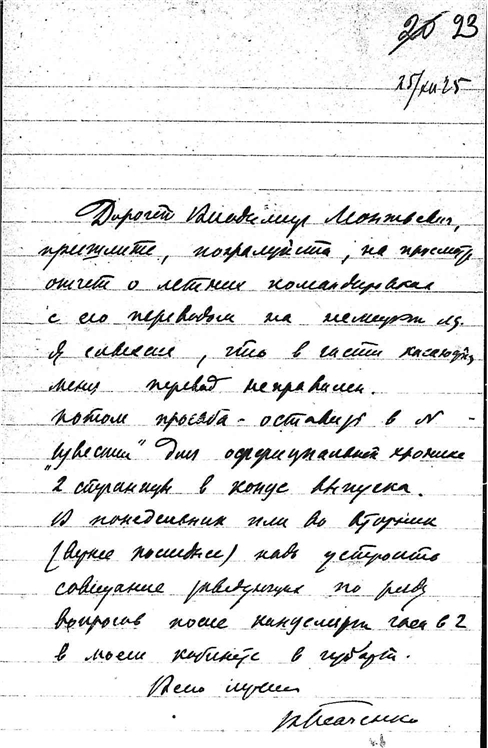 23
25/XII 25
Дорогой Владимир
пришлите, пожалуйста, на просмотр
отчет о летних командировках
с его переводом на немецкий яз.
Я слышал, что в части касающейся
меня перевод неправилен.
Потом просьба - оставить в N -
"Известий" для официальной хроники
2 страницы в конце выпуска.
В понедельник или во вторник
(лучше последнее) надо устроить
совещание заведующих по ряду
вопросов после канцелярии часа в 2
в моем кабинете в
Всего лучшего